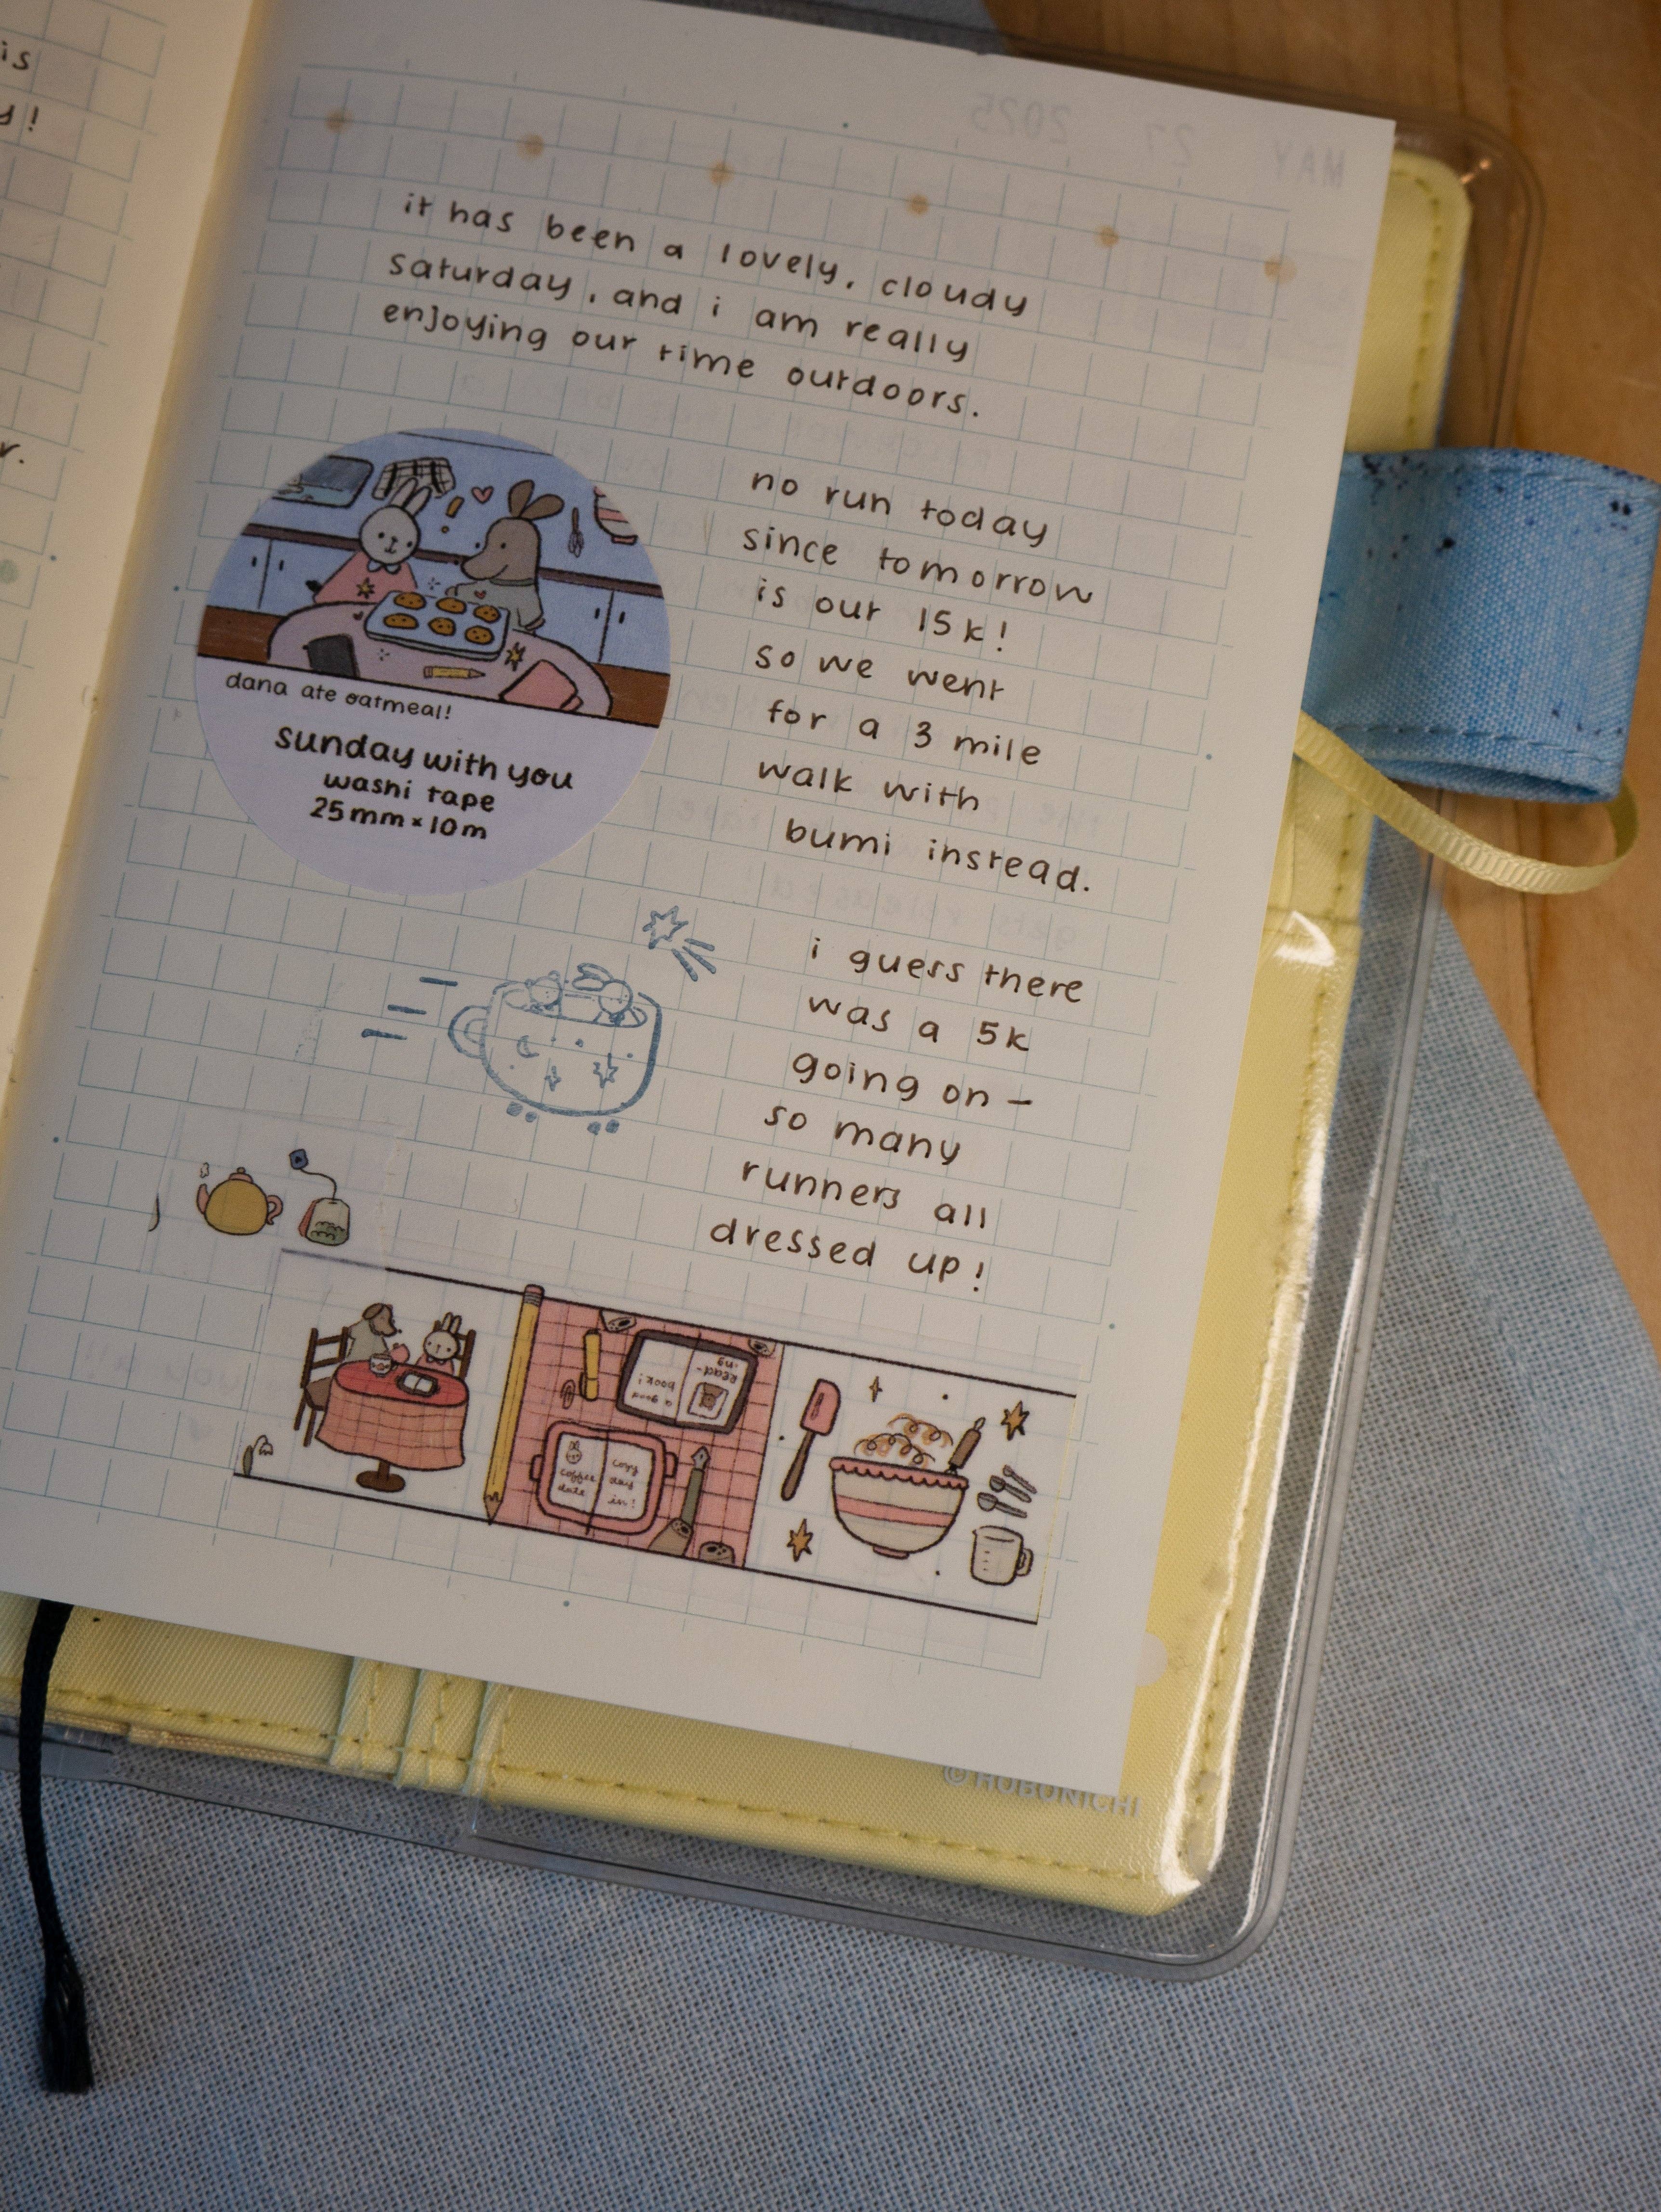 is
it has been a lovely, cloudy
saturday, and i am really
enjoying our time outdoors.
dana ate oatmeal!
sunday with you
washi tape
25mm × 10m
no run today
since tomorrow
is our 15k!
so we went
for a 3 mile
walk with
bumi instead.
i guess there
was a 5k
going on –
so many
runners all
dressed up!
a good
book!
read-
ing
coffee
date
cozy
day
in!
MAY 27 2025
© HOBONICHI